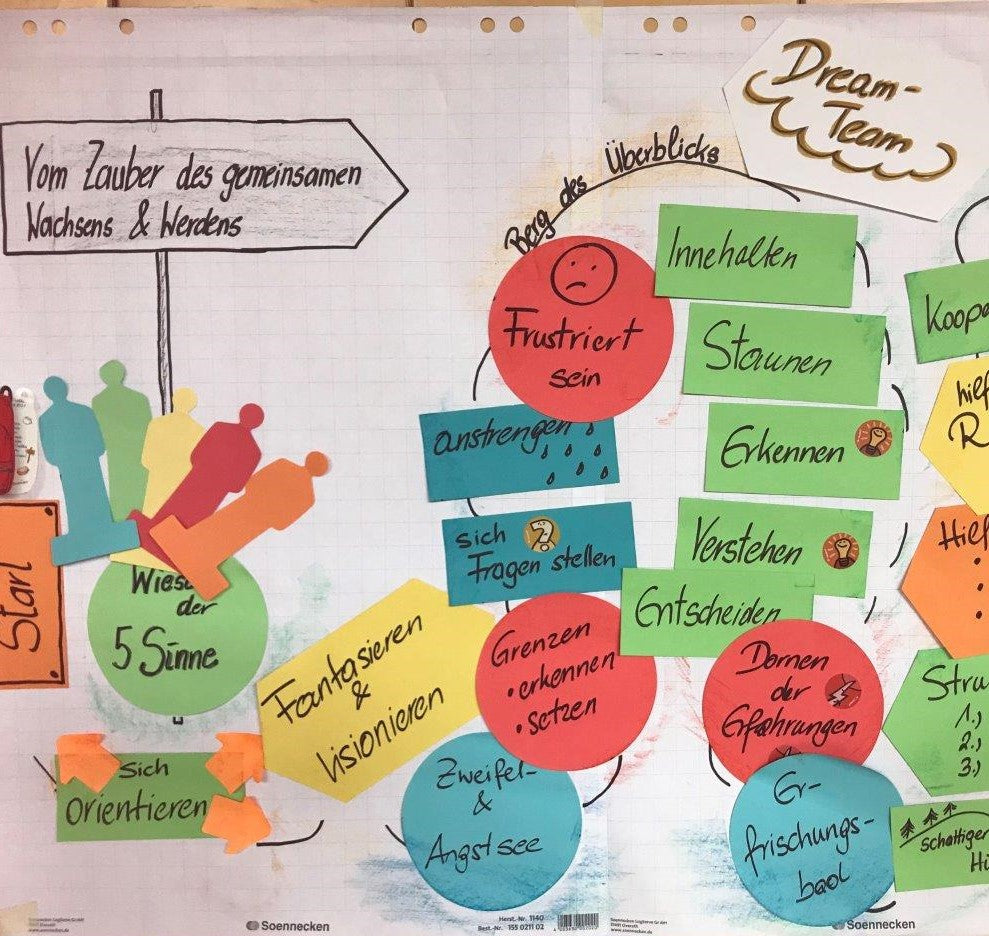 Dream-
Team
Vom Zauber des gemeinsamen
Wachsens & Werdens
Berg des Überblicks
Frustriert
sein
Innehalten
Staunen
Erkennen
Verstehen
Entscheiden
anstrengen
sich
Fragen stellen
Start
Wiese
der
5 Sinne
Fantasieren
&
Visionieren
Grenzen
• erkennen
• setzen
Dornen
der
Erfahrungen
sich
orientieren
Zweifel-
&
Angstsee
Er-
frischungs-
bad
Koope
hilf
R
Hilf
Stru
1.)
2.)
3.)
Schattiger
Hü
Soennecken
Herst.-Nr. 1140
Best.-Nr. 155 0211 02
Soennecken